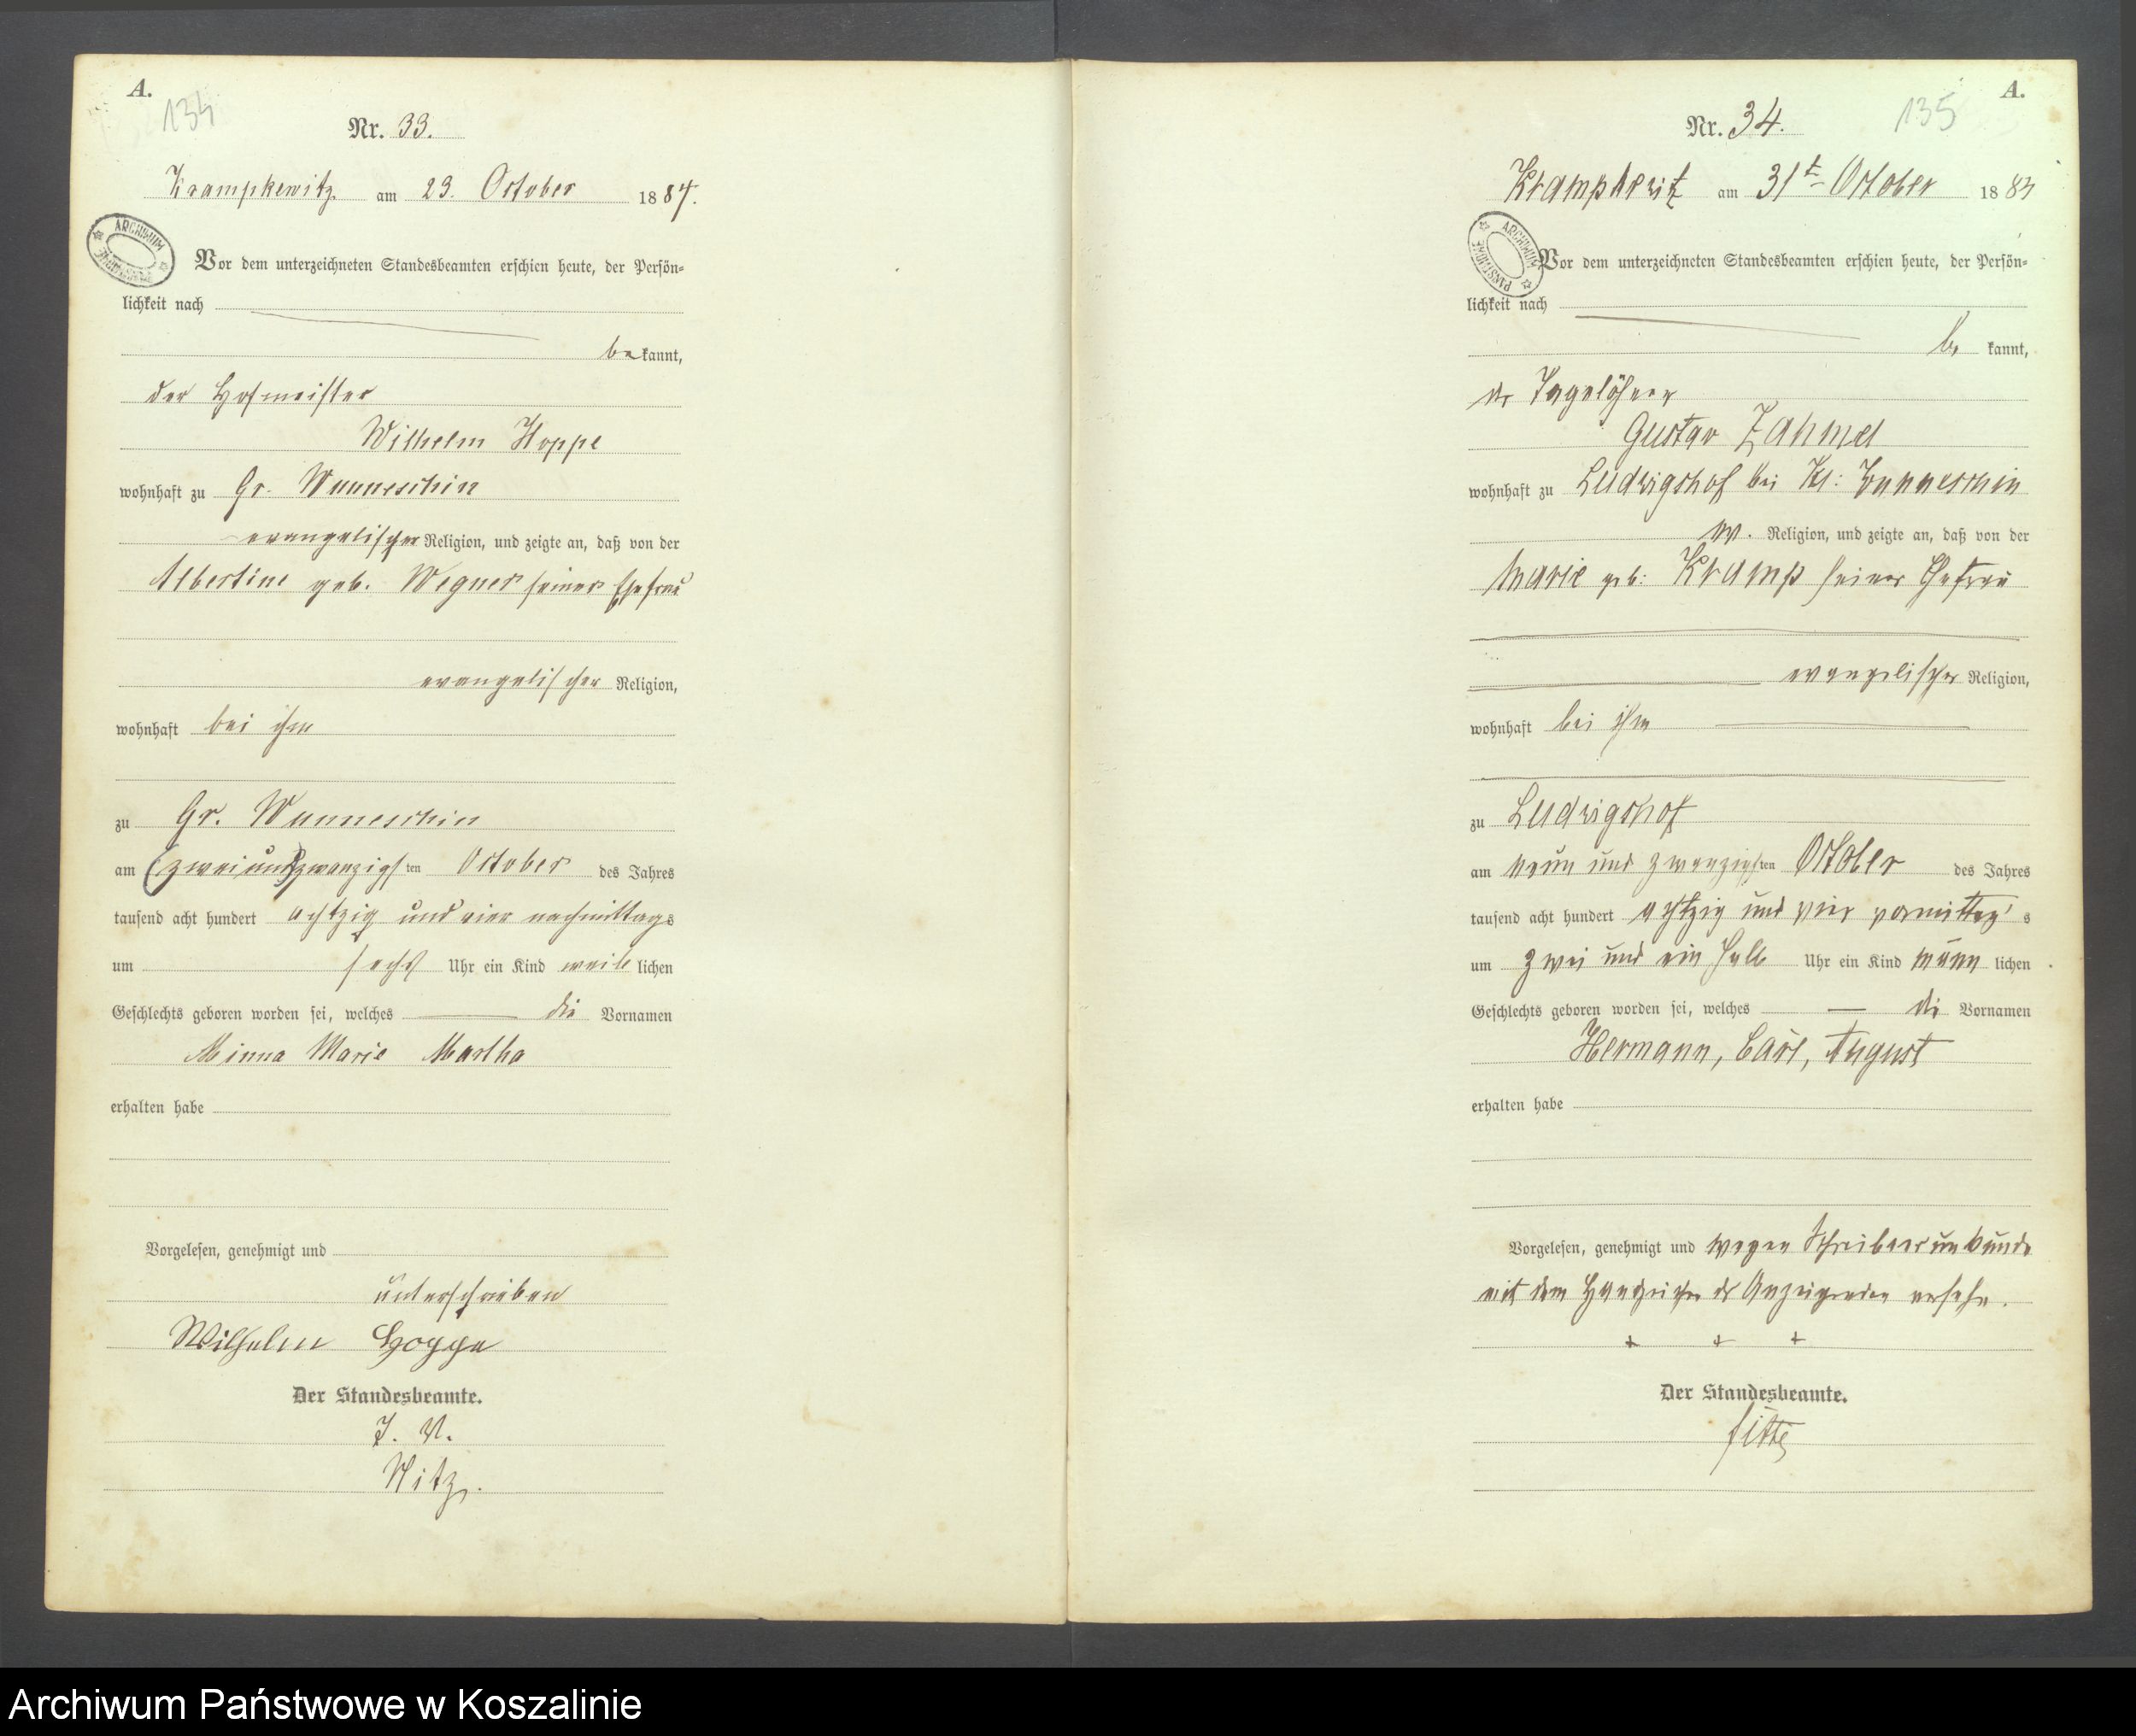 A.
134
Nr. 33.
Krampkewitz am 23. October 1884.
ARCHIWUM
Vor dem unterzeichneten Standesbeamten erschien heute, der Persön=
lichkeit nach
be kannt,
der Hofmeister
Wilhelm Hoppe
wohnhaft zu Gr. Wunneschin
evangelischer Religion, und zeigte an, daß von der
Albertine geb. Wegner seiner Ehefrau
evangelischer Religion,
wohnhaft bei ihm
zu Gr. Wunneschin
am zweiundzwanzigsten October des Jahres
tausend acht hundert achtzig und vier nachmittags
um sechs Uhr ein Kind weib lichen
Geschlechts geboren worden sei, welches die Vornamen
Minna Marie Martha
erhalten habe
Vorgelesen, genehmigt und
unterschrieben
Wilhelm Hoppe
Der Standesbeamte.
J. V.
Nitz.
A.
135
Nr. 34.
Krampkewitz am 31t October 188
ARCHIWUM PAŃSTWOWE
Vor dem unterzeichneten Standesbeamten erschien heute, der Persön=
lichkeit nach
be kannt,
der Tagelöhner
Gustav Zahmel
wohnhaft zu Ludwigshof bei Kl: Wunneschin
ev. Religion, und zeigte an, daß von der
Marie geb: Kramp seiner Ehefrau
evangelischer Religion,
wohnhaft bei ihm
zu Ludwigshof
am neun und zwanzigsten October des Jahres
tausend acht hundert achtzig und vier vormittag s
um zwei und ein halb Uhr ein Kind männ lichen
Geschlechts geboren worden sei, welches die Vornamen
Hermann, Carl, August
erhalten habe
Vorgelesen, genehmigt und wegen Schreibensunkunde
mit dem Handzeichen des Anzeigenden versehen.
+ + +
Der Standesbeamte.
Archiwum Państwowe w Koszalinie